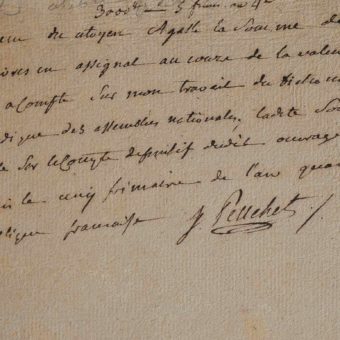 3000 5 frim. an 4e
du citoyen Agasse la Somme de
en assignat au couze de la valeur
acompte Sur mon travail du
des assembles nationales, ladite So
Sur le Compte definitif dudit ouvrage
le cinq frimaire de l'an qua
française J Peuchet